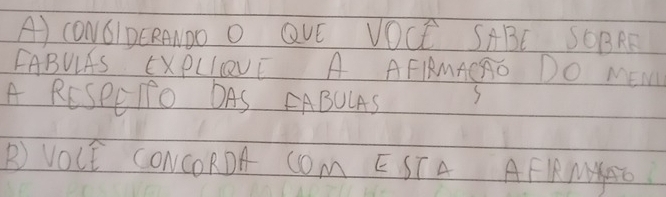 A) CONSIDERANDO O QUE VOCÊ SABE SOBRE
FABULAS EXPLIQUE A AFIRMAÇÃO DO MENI
A RESPEITO DAS FABULAS
B) VOCÊ CONCORDA COM ESTA AFIRMAÇÃO